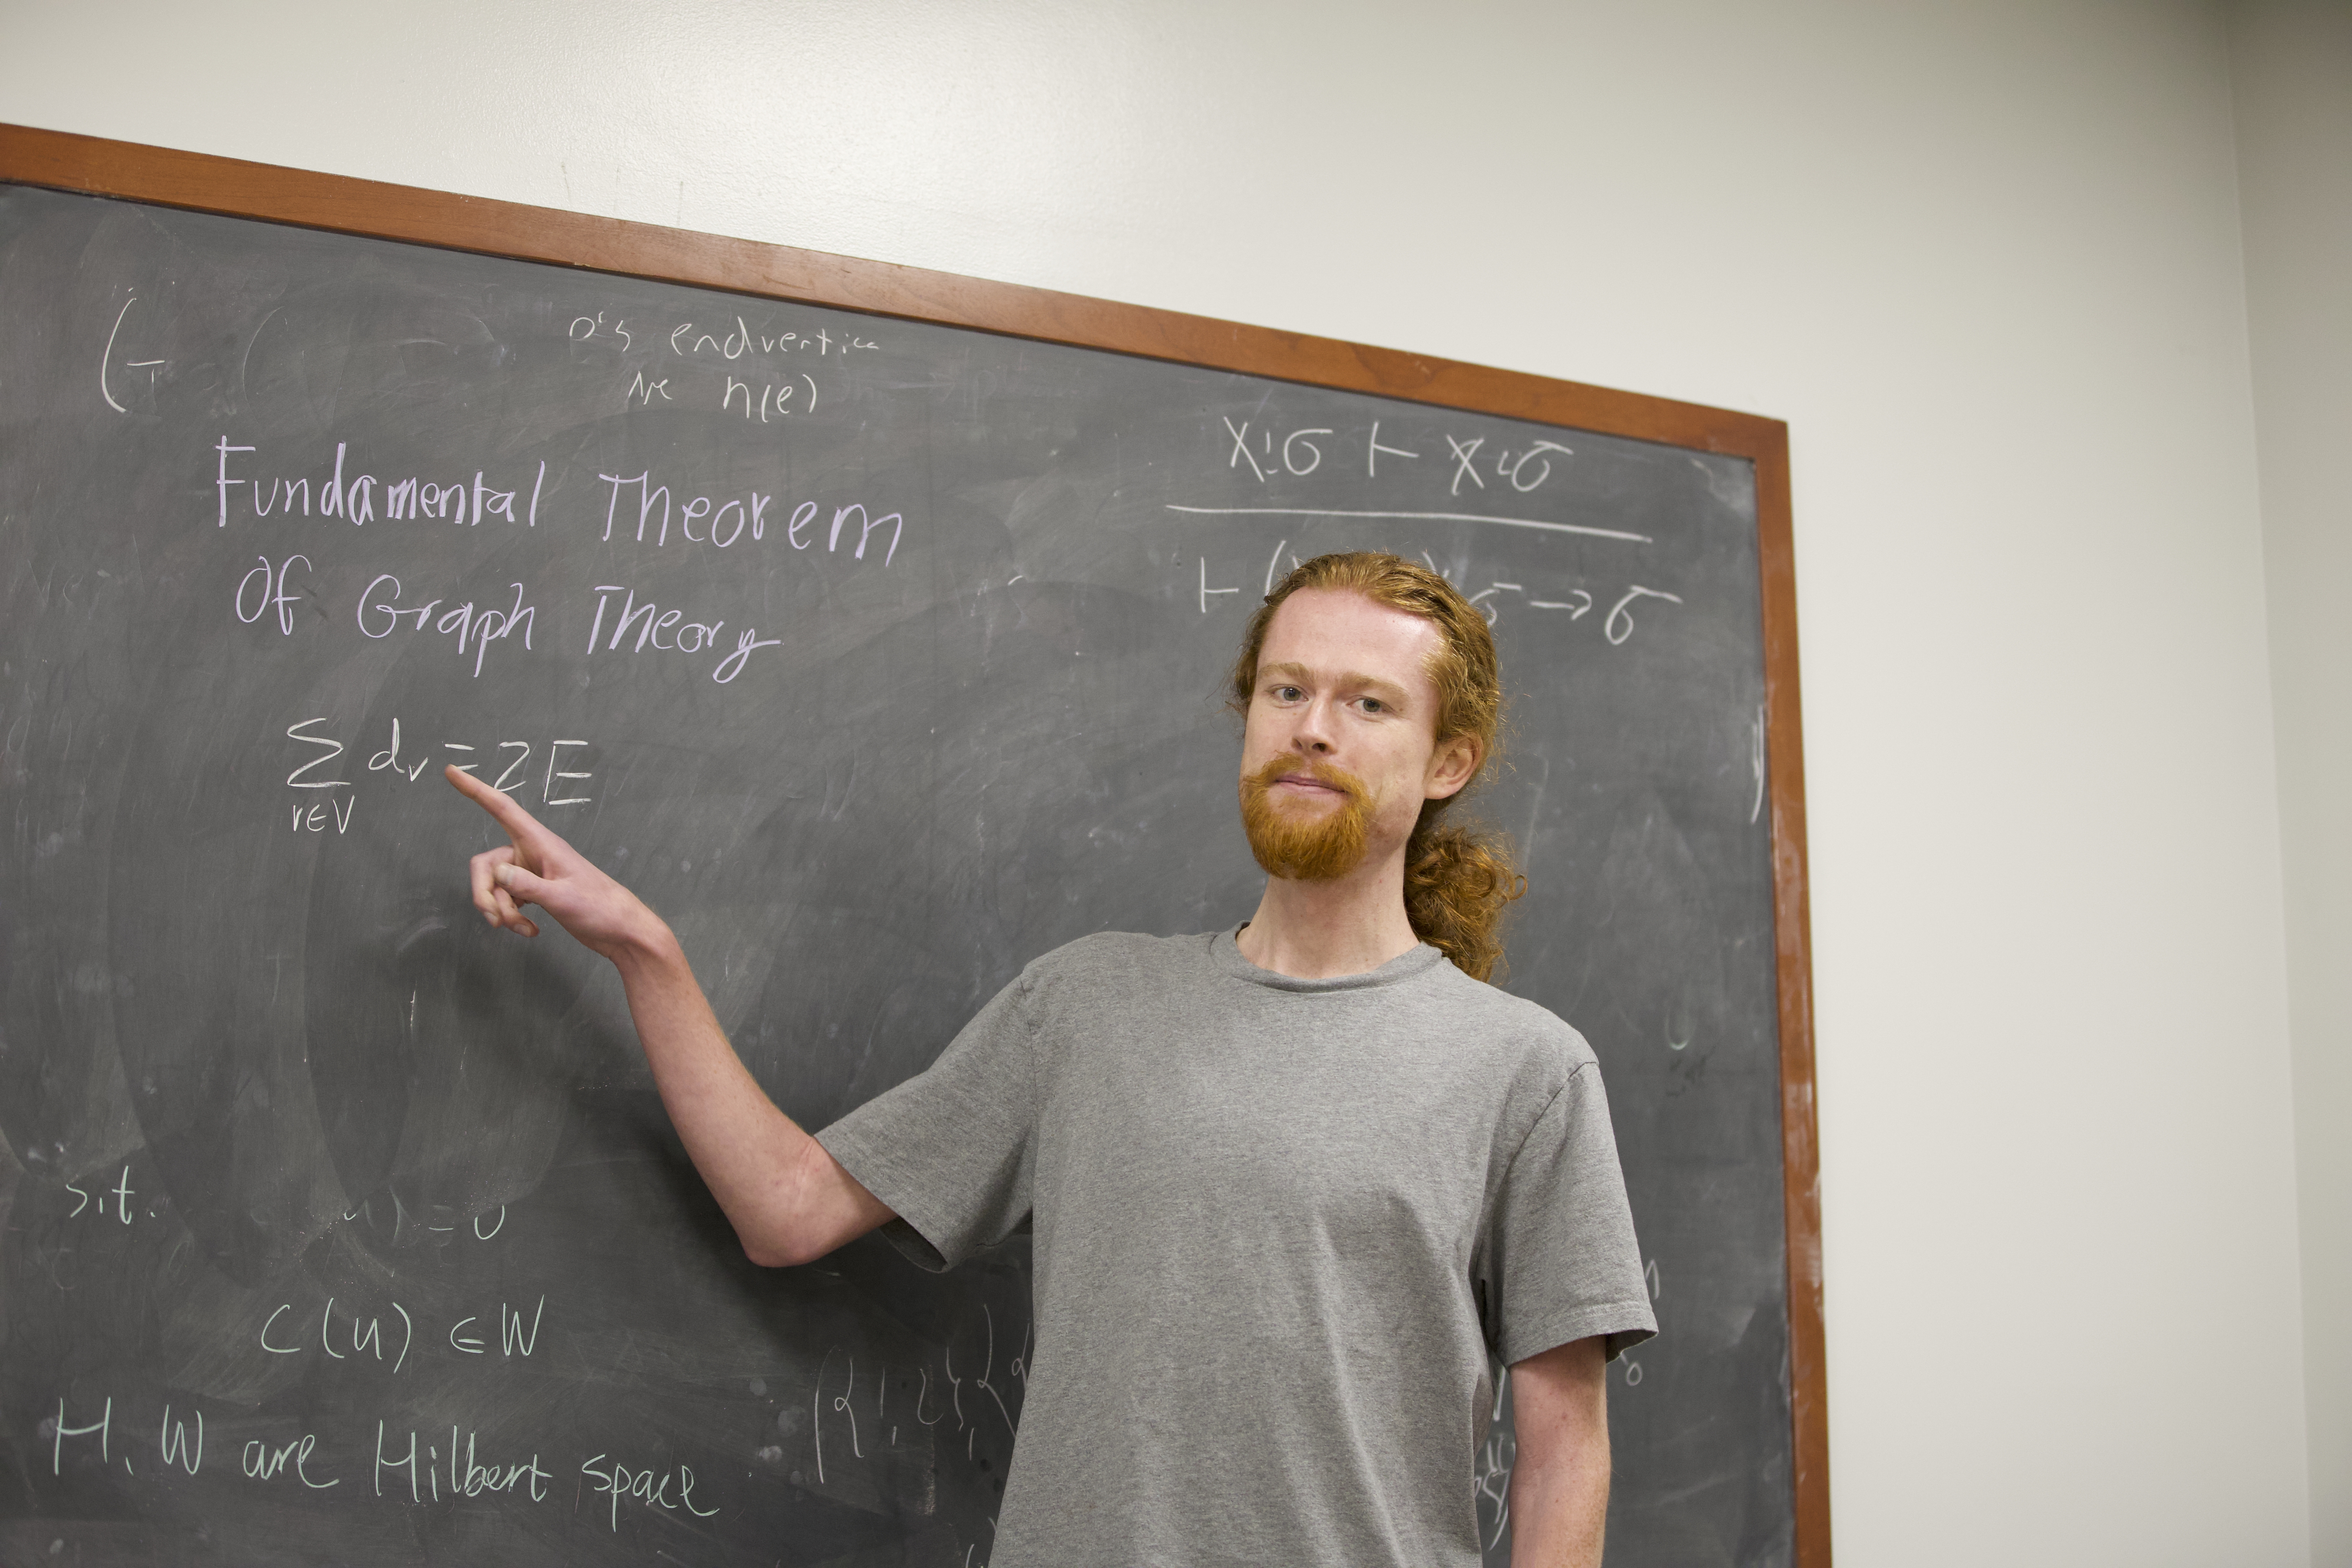 e's endvertices
are η(e)
Fundamental Theorem
Of Graph Theory
∑ dᵥ = 2E
v∈V
x:σ ⊢ x:σ
⊢ ( σ → σ
s.t.
) = 0
C(u) ∈ W
H, W are Hilbert space